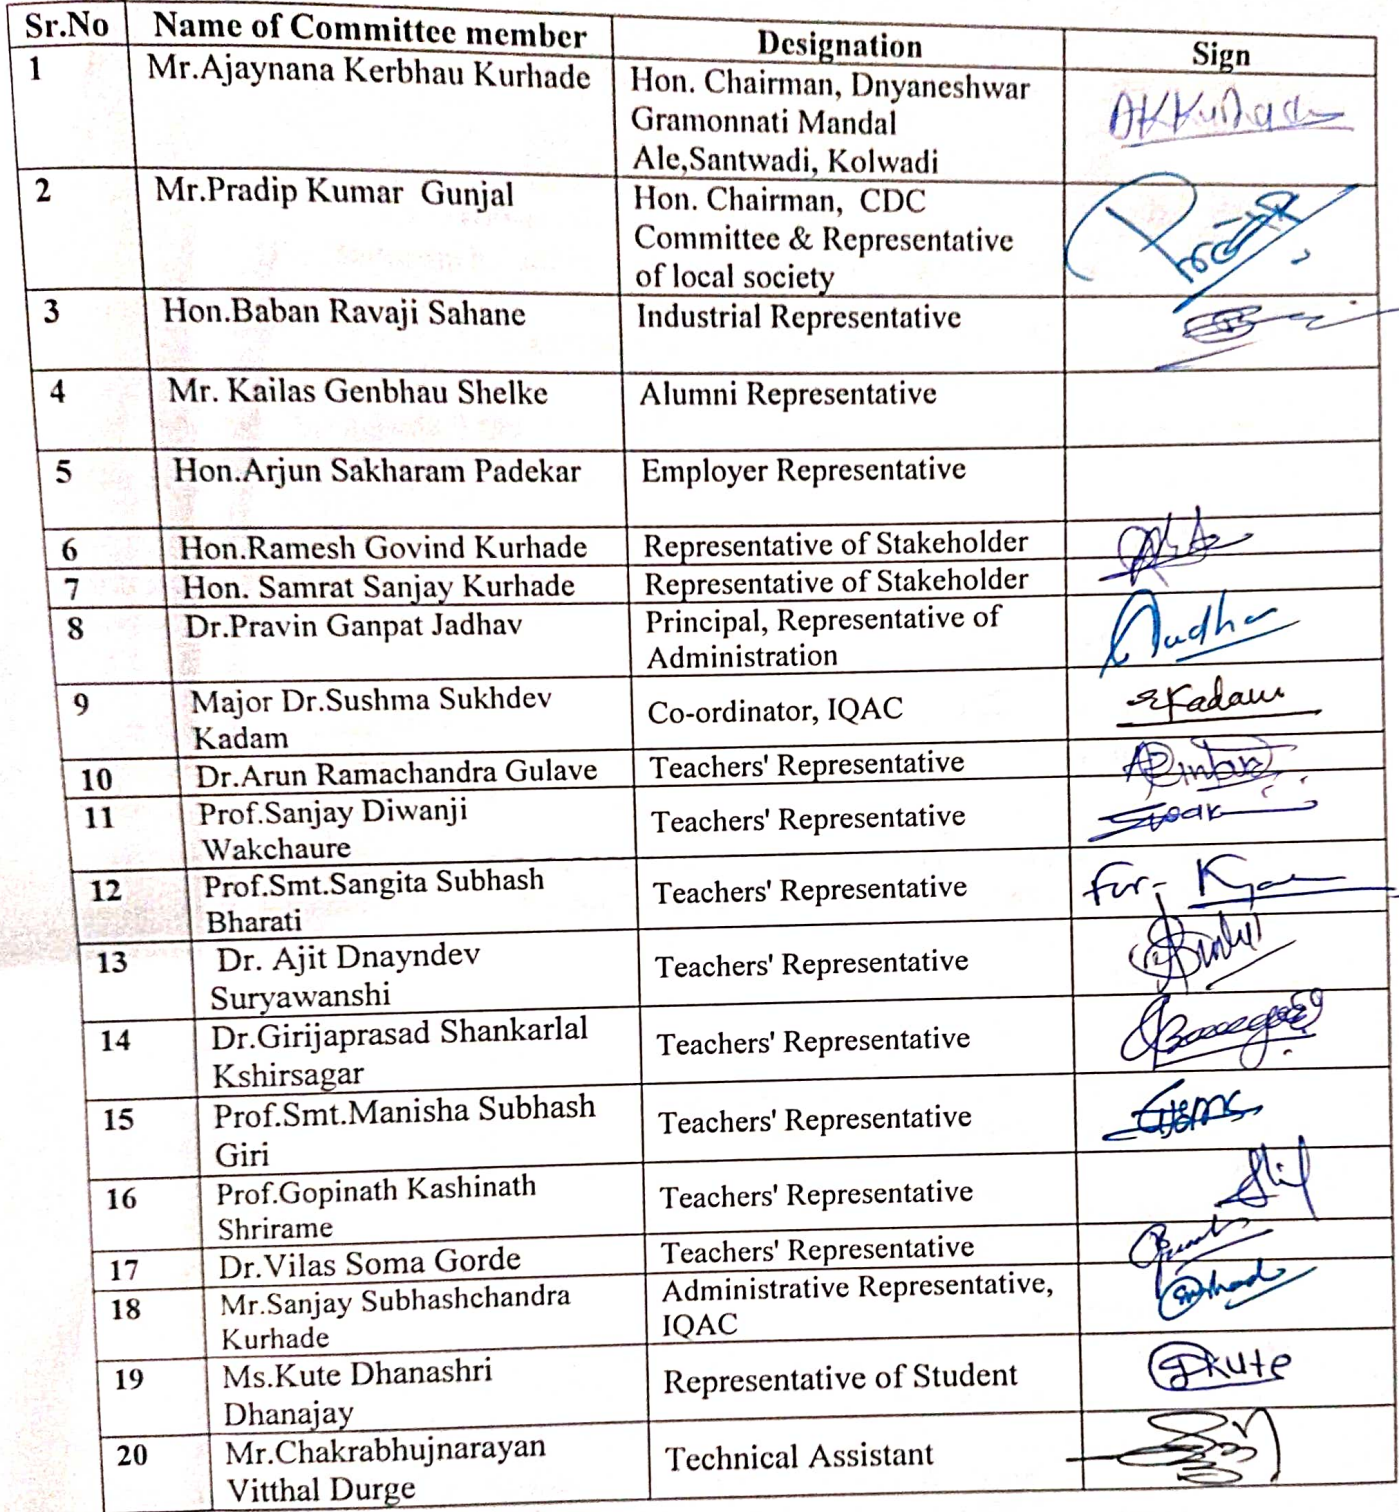 Sr.No Name of Committee member Designation Sign
1 Mr.Ajaynana Kerbhau Kurhade Hon. Chairman, Dnyaneshwar
Gramonnati Mandal
Ale,Santwadi, Kolwadi
2 Mr.Pradip Kumar Gunjal Hon. Chairman, CDC
Committee & Representative
of local society
3 Hon.Baban Ravaji Sahane Industrial Representative
4 Mr. Kailas Genbhau Shelke Alumni Representative
5 Hon.Arjun Sakharam Padekar Employer Representative
6 Hon.Ramesh Govind Kurhade Representative of Stakeholder
7 Hon. Samrat Sanjay Kurhade Representative of Stakeholder
8 Dr.Pravin Ganpat Jadhav Principal, Representative of
Administration
9 Major Dr.Sushma Sukhdev Co-ordinator, IQAC SKadam
Kadam
10 Dr.Arun Ramachandra Gulave Teachers' Representative
11 Prof.Sanjay Diwanji Teachers' Representative
Wakchaure
12 Prof.Smt.Sangita Subhash Teachers' Representative For-
Bharati
13 Dr. Ajit Dnayndev Teachers' Representative
Suryawanshi
14 Dr.Girijaprasad Shankarlal Teachers' Representative
Kshirsagar
15 Prof.Smt.Manisha Subhash Teachers' Representative
Giri
16 Prof.Gopinath Kashinath Teachers' Representative
Shrirame
17 Dr.Vilas Soma Gorde Teachers' Representative
18 Mr.Sanjay Subhashchandra Administrative Representative,
Kurhade IQAC
19 Ms.Kute Dhanashri Representative of Student DKute
Dhanajay
20 Mr.Chakrabhujnarayan Technical Assistant
Vitthal Durge